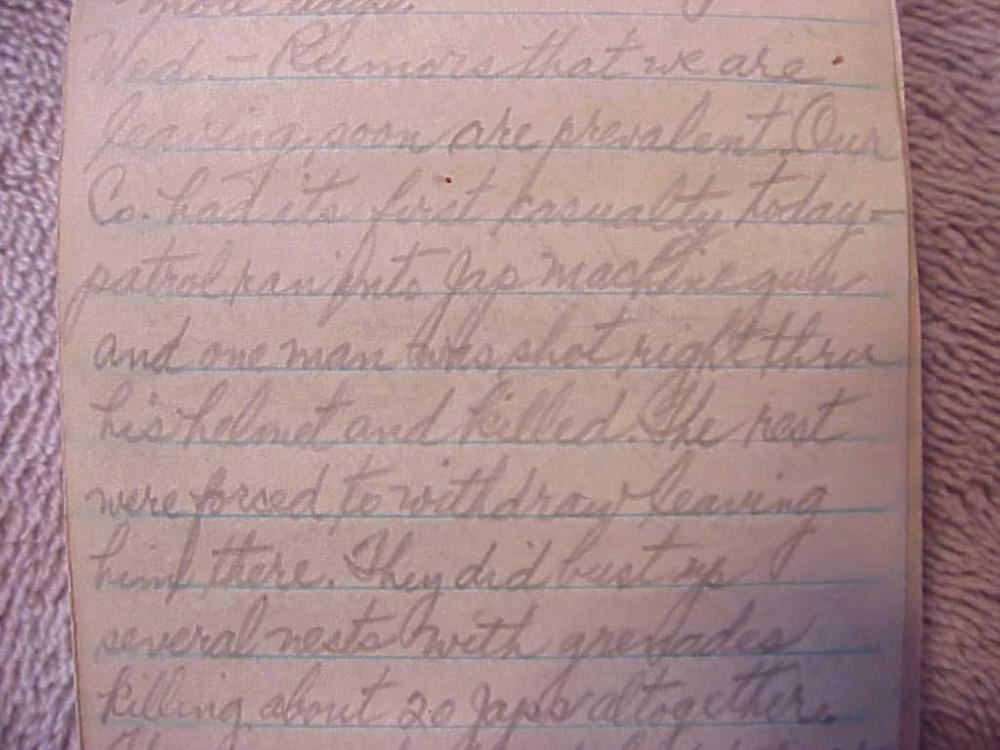 more days.
Wed. - Rumors that we are
leaving soon are prevalent. Our
Co. had its first casualty today -
patrol ran into Jap machine gun
and one man was shot right thru
his helmet and killed. The rest
were forced to withdraw leaving
him there. They did bust up
several nests with grenades
killing about 20 Japs altogether.